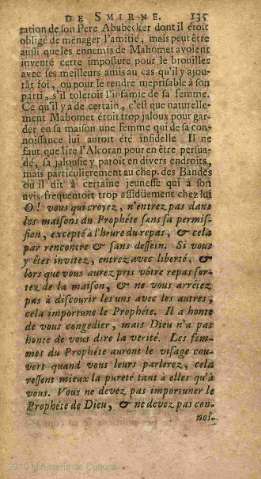 DE SMIRNE. 135
tation de son Pere Abubecker dont il étoit
obligé de ménager l'amitié, mais peut être
aussi que les ennemis de Mahomet avoient
inventé cette imposture pour le brouiller
avec ses meilleurs amis au cas qu'il y ajou-
tât foi, ou pour le rendre meprisable à son
parti, s'il toleroit l'infamie de sa femme.
Ce qu'il y a de certain, c'est que naturelle-
ment Mahomet étoit trop jaloux pour gar-
der en sa maison une femme qui de sa con-
noissance lui auroit été infidelle. Il ne
faut que lire l'Alcoran pour en être persua-
dé, sa jalousie y paroît en divers endroits,
mais particulierement au chap. des Bandes
où il dit à certaine jeunesse qui à son
avis frequentoit trop assiduement chez lui
O! vous qui croyez, n'entrez pas dans
les maisons du Prophéte sans sa permis-
sion, excepté à l'heure du repas, & cela
par rencontre & sans dessein. Si vous
y êtes invitez, entrez avec liberté, &
lors que vous aurez pris vôtre repas sor-
tez de la maison, & ne vous arrêtez
pas à discourir les uns avec les autres,
cela importune le Prophéte. Il a honte
de vous congedier, mais Dieu n'a pas
honte de vous dire la verité. Les fem-
mes du Prophéte auront le visage cou-
vert quand vous leurs parlerez, cela
ressent mieux la pureté tant à elles qu'à
vous. Vous ne devez pas importuner le
Prophéte de Dieu, & ne devez pas con-
noî-